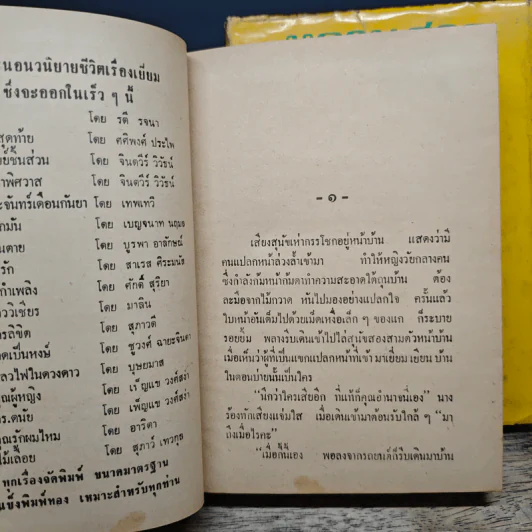 ะนอนวนิยายชีวิตเรื่องเยี่ยม
ซึ่งจะออกในเร็ว ๆ นี้
โดย รตี รจนา
สุดท้าย โดย ศศิพงศ์ ประไพ
ย์ชิ้นส่วน โดย จินตวีร์ วิวัธน์
าพิศวาส โดย จินตวีร์ วิวัธน์
ะจันทร์เดือนกันยา โดย เทพเทวี
กมัน โดย เบญจนาท
นตาย โดย บูรพา อาลักษณ์
รัก โดย สาเรส ศิระมนัส
กำเพลิง โดย ศักดิ์ สุริยา
วิเชียร โดย มาลิน
รลิขิต โดย สุภาวดี
ดเป็นหงษ์ โดย ชูวงศ์ ฉายะจินดา
ลวไฟในดวงดาว โดย บุษยมาส
ณผู้หญิง โดย เพ็ญแข วงศ์สง่า
ร.ดนัย โดย เพ็ญแข วงศ์สง่า
ณรักผมไหม โดย อาริตา
ไม้เลื้อย โดย สุภาว์ เทวกุล
ทุกเรื่องจัดพิมพ์ ขนาดมาตรฐาน
แข็งพิมพ์ทอง เหมาะสำหรับทุกท่าน
- ๑ -
เสียงสุนัขเห่ากรรโชกอยู่หน้าบ้าน แสดงว่ามี
คนแปลกหน้าล่วงล้ำเข้ามา ทำให้หญิงวัยกลางคน
ซึ่งกำลังก้มหน้าก้มตาทำความสะอาดใต้ถุนบ้าน ต้อง
ละมือจากไม้กวาด หันไปมองอย่างแปลกใจ ครั้นแล้ว
ใบหน้าอันเต็มไปด้วยเม็ดเหงื่อเล็ก ๆ ของแก ก็ระบาย
รอยยิ้ม พลางรีบเดินเข้าไปไล่สุนัขสองสามตัวหน้าบ้าน
เมื่อเห็นว่าผู้ที่เป็นแขกแปลกหน้าที่เข้ามาเยี่ยมเยียนบ้าน
ในตอนบ่ายนั้นเป็นใคร
“นึกว่าใครเสียอีก ที่แท้ก็คุณอำนาจนี่เอง” นาง
ร้องทักเสียงแจ่มใส เมื่อเดินเข้ามาต้อนรับใกล้ ๆ “มา
ถึงเมื่อไรคะ”
“เมื่อกี้นี้เอง พอลงจากรถยนต์ก็รีบเดินมาบ้าน